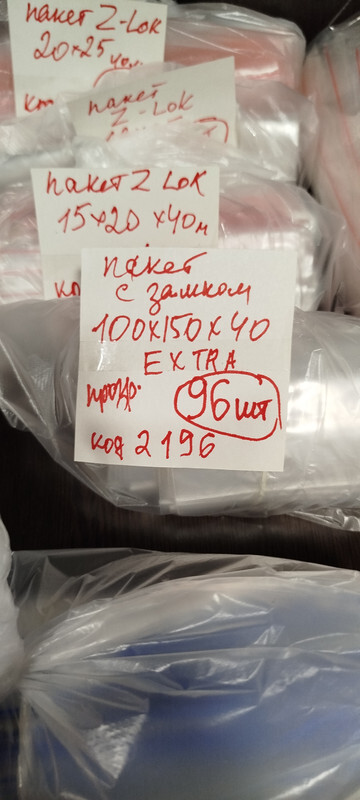 пакет Z-Lok
20×25
пакет
Z-LOK
пакет Z LOK
15×20 ×40м
пакет
с замком
100×150×40
EXTRA
прозр.
96 шт
код 2196